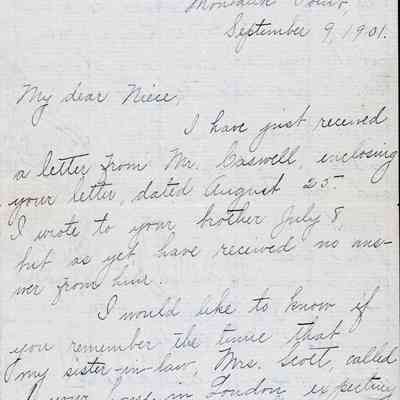 September 9, 1901.
My dear Niece,
I have just received
a letter from Mr. Caswell, enclosing
your letter, dated August 25.
I wrote to your brother July 8,
but as yet have received no ans-
wer from him.
I would like to know if
you remember the time that
my sister-in-law, Mrs. Scott, called
in London expecting